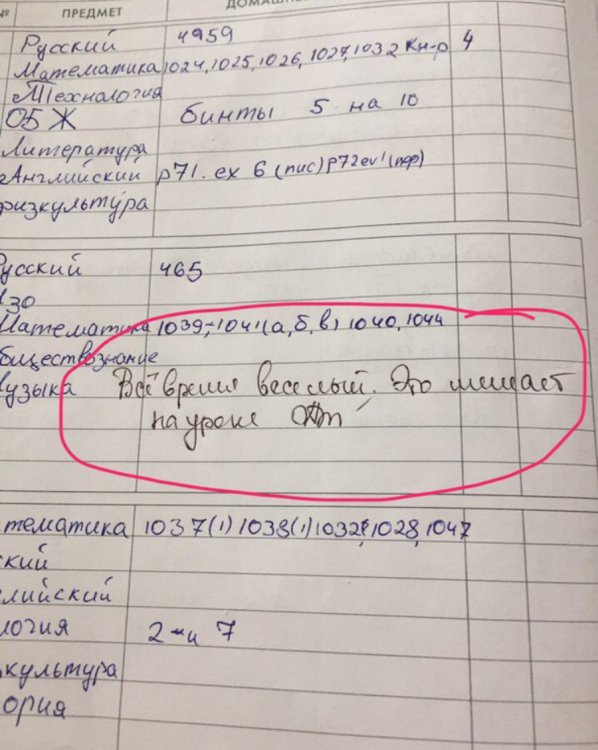 № ПРЕДМЕТ
Русский 4959
Математика 1024, 1025, 1026, 1027, 1032 Кн-р 4
Технология
ОБЖ бинты 5 на 10
Литература
Английский р71. ex 6 (пис) р72
физкультура
усский 465
изо
Математика 1039, 1041(а, б, в) 1040, 1044
бществознание
узыка Всё время веселый. Это мешает
на уроке
тематика 1037(1) 1038(1) 1032, 1028, 1047
ский
лийский
логия 7
культура
ория